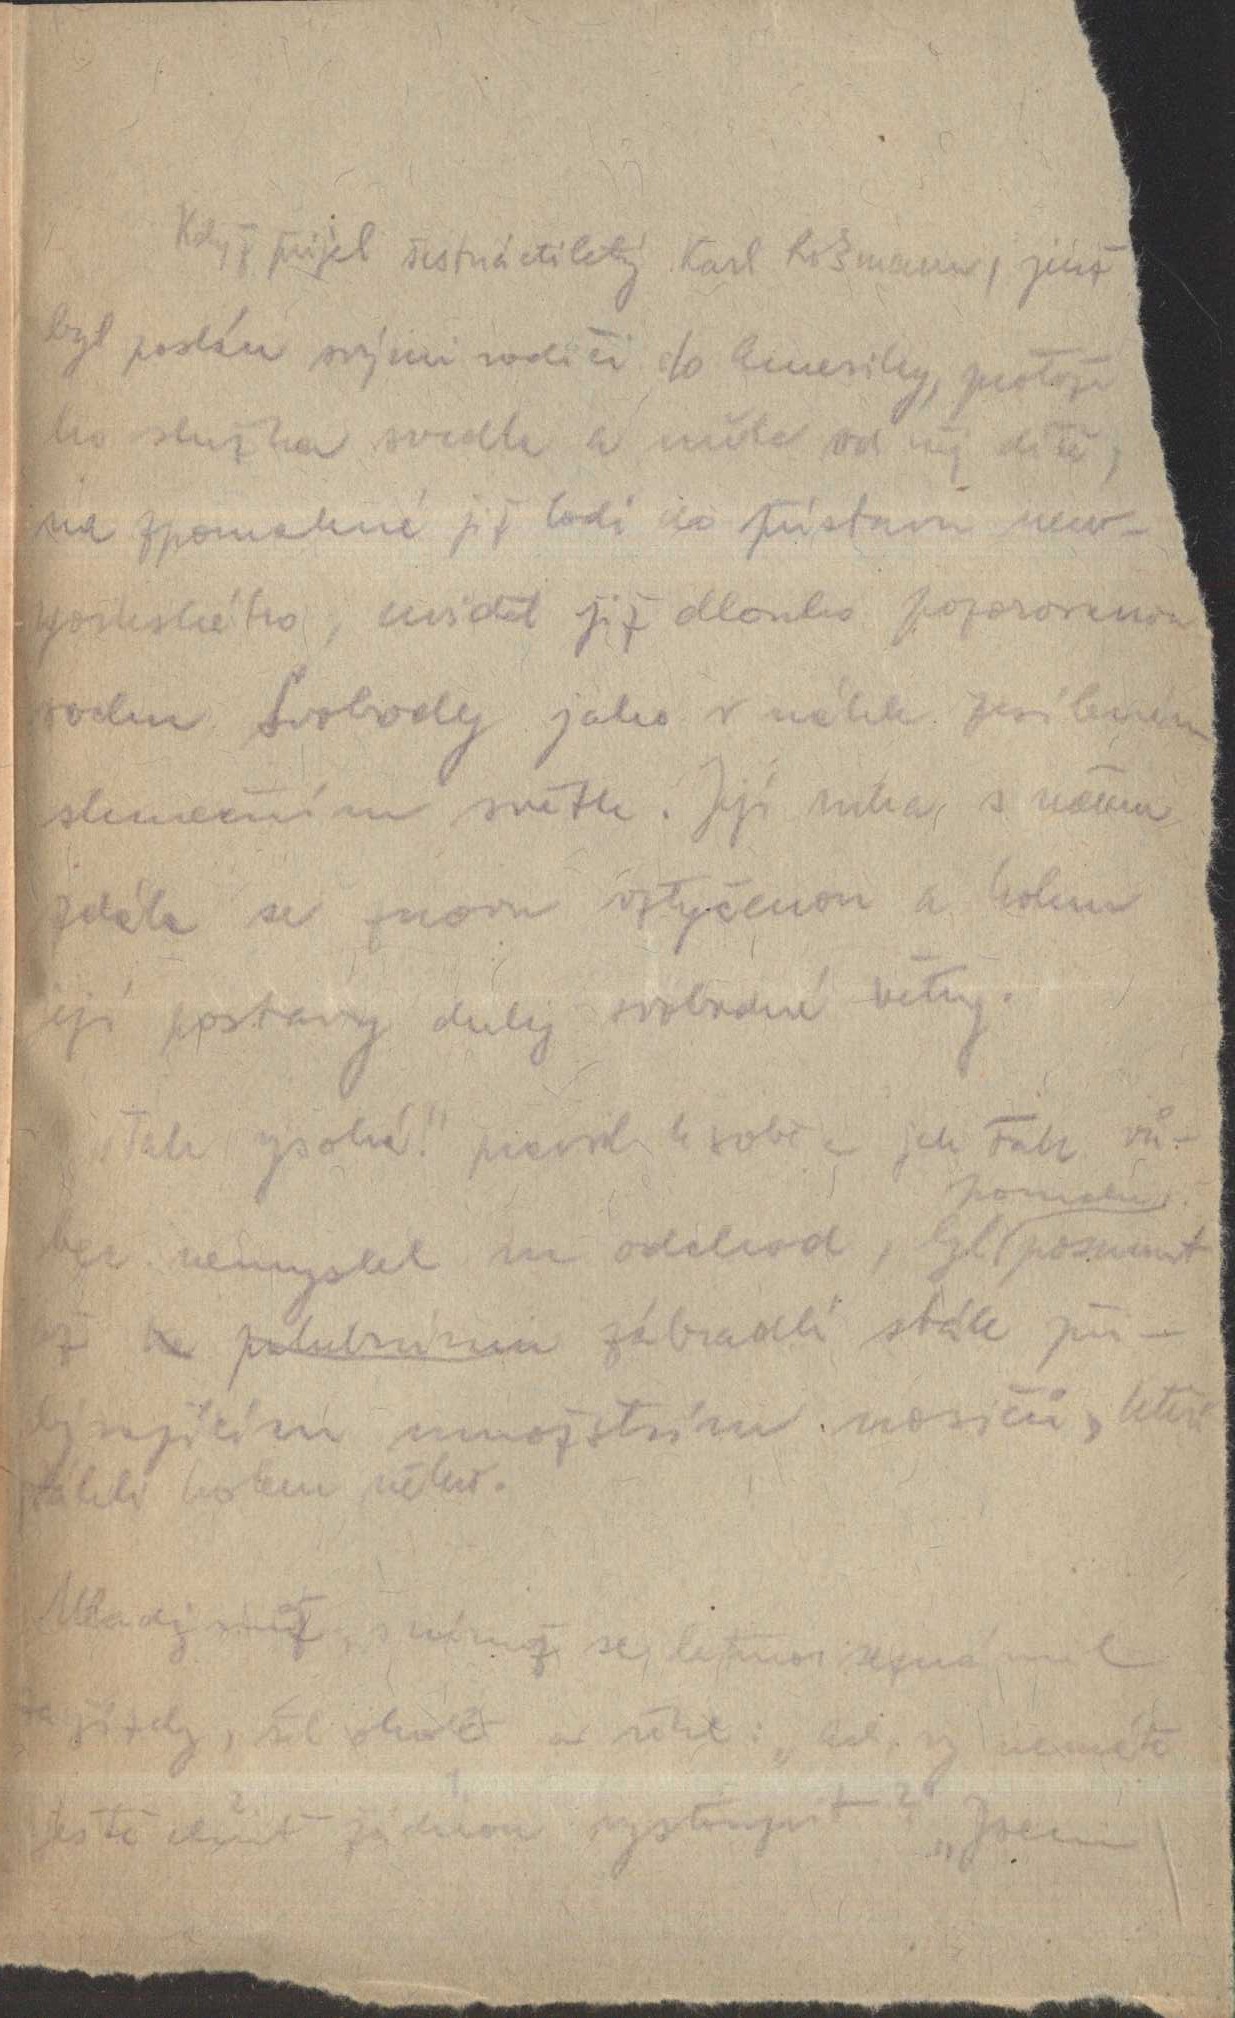 Když přijel šestnáctiletý Karl Rošmann, jenž
byl poslán svými rodiči do Ameriky, protože
ho služka svedla a měla od něj dítě,
na zpomalené již lodi do přístavu new-
yorského, uviděl již dlouho pozorovanou
sochu Svobody jako v náhle zesíleném
slunečním světle. Její ruka s mečem
zdála se znovu vztyčenou a kolem
její postavy duly svobodné větry.
„Tak vysoká!" pravil k sobě a jak tak vů-
pomalu
bec nemyslel na odchod, byl posunut
až ke palubnímu zábradlí stále při-
bývajícím množstvím nosičů, kteří
táhli kolem něho.
Mladý muž, s nímž se letmo seznámil
za jízdy, šel okolo a řekl: „Ach, vy nemáte
ještě chuť žádnou vystoupit?" „Jsem